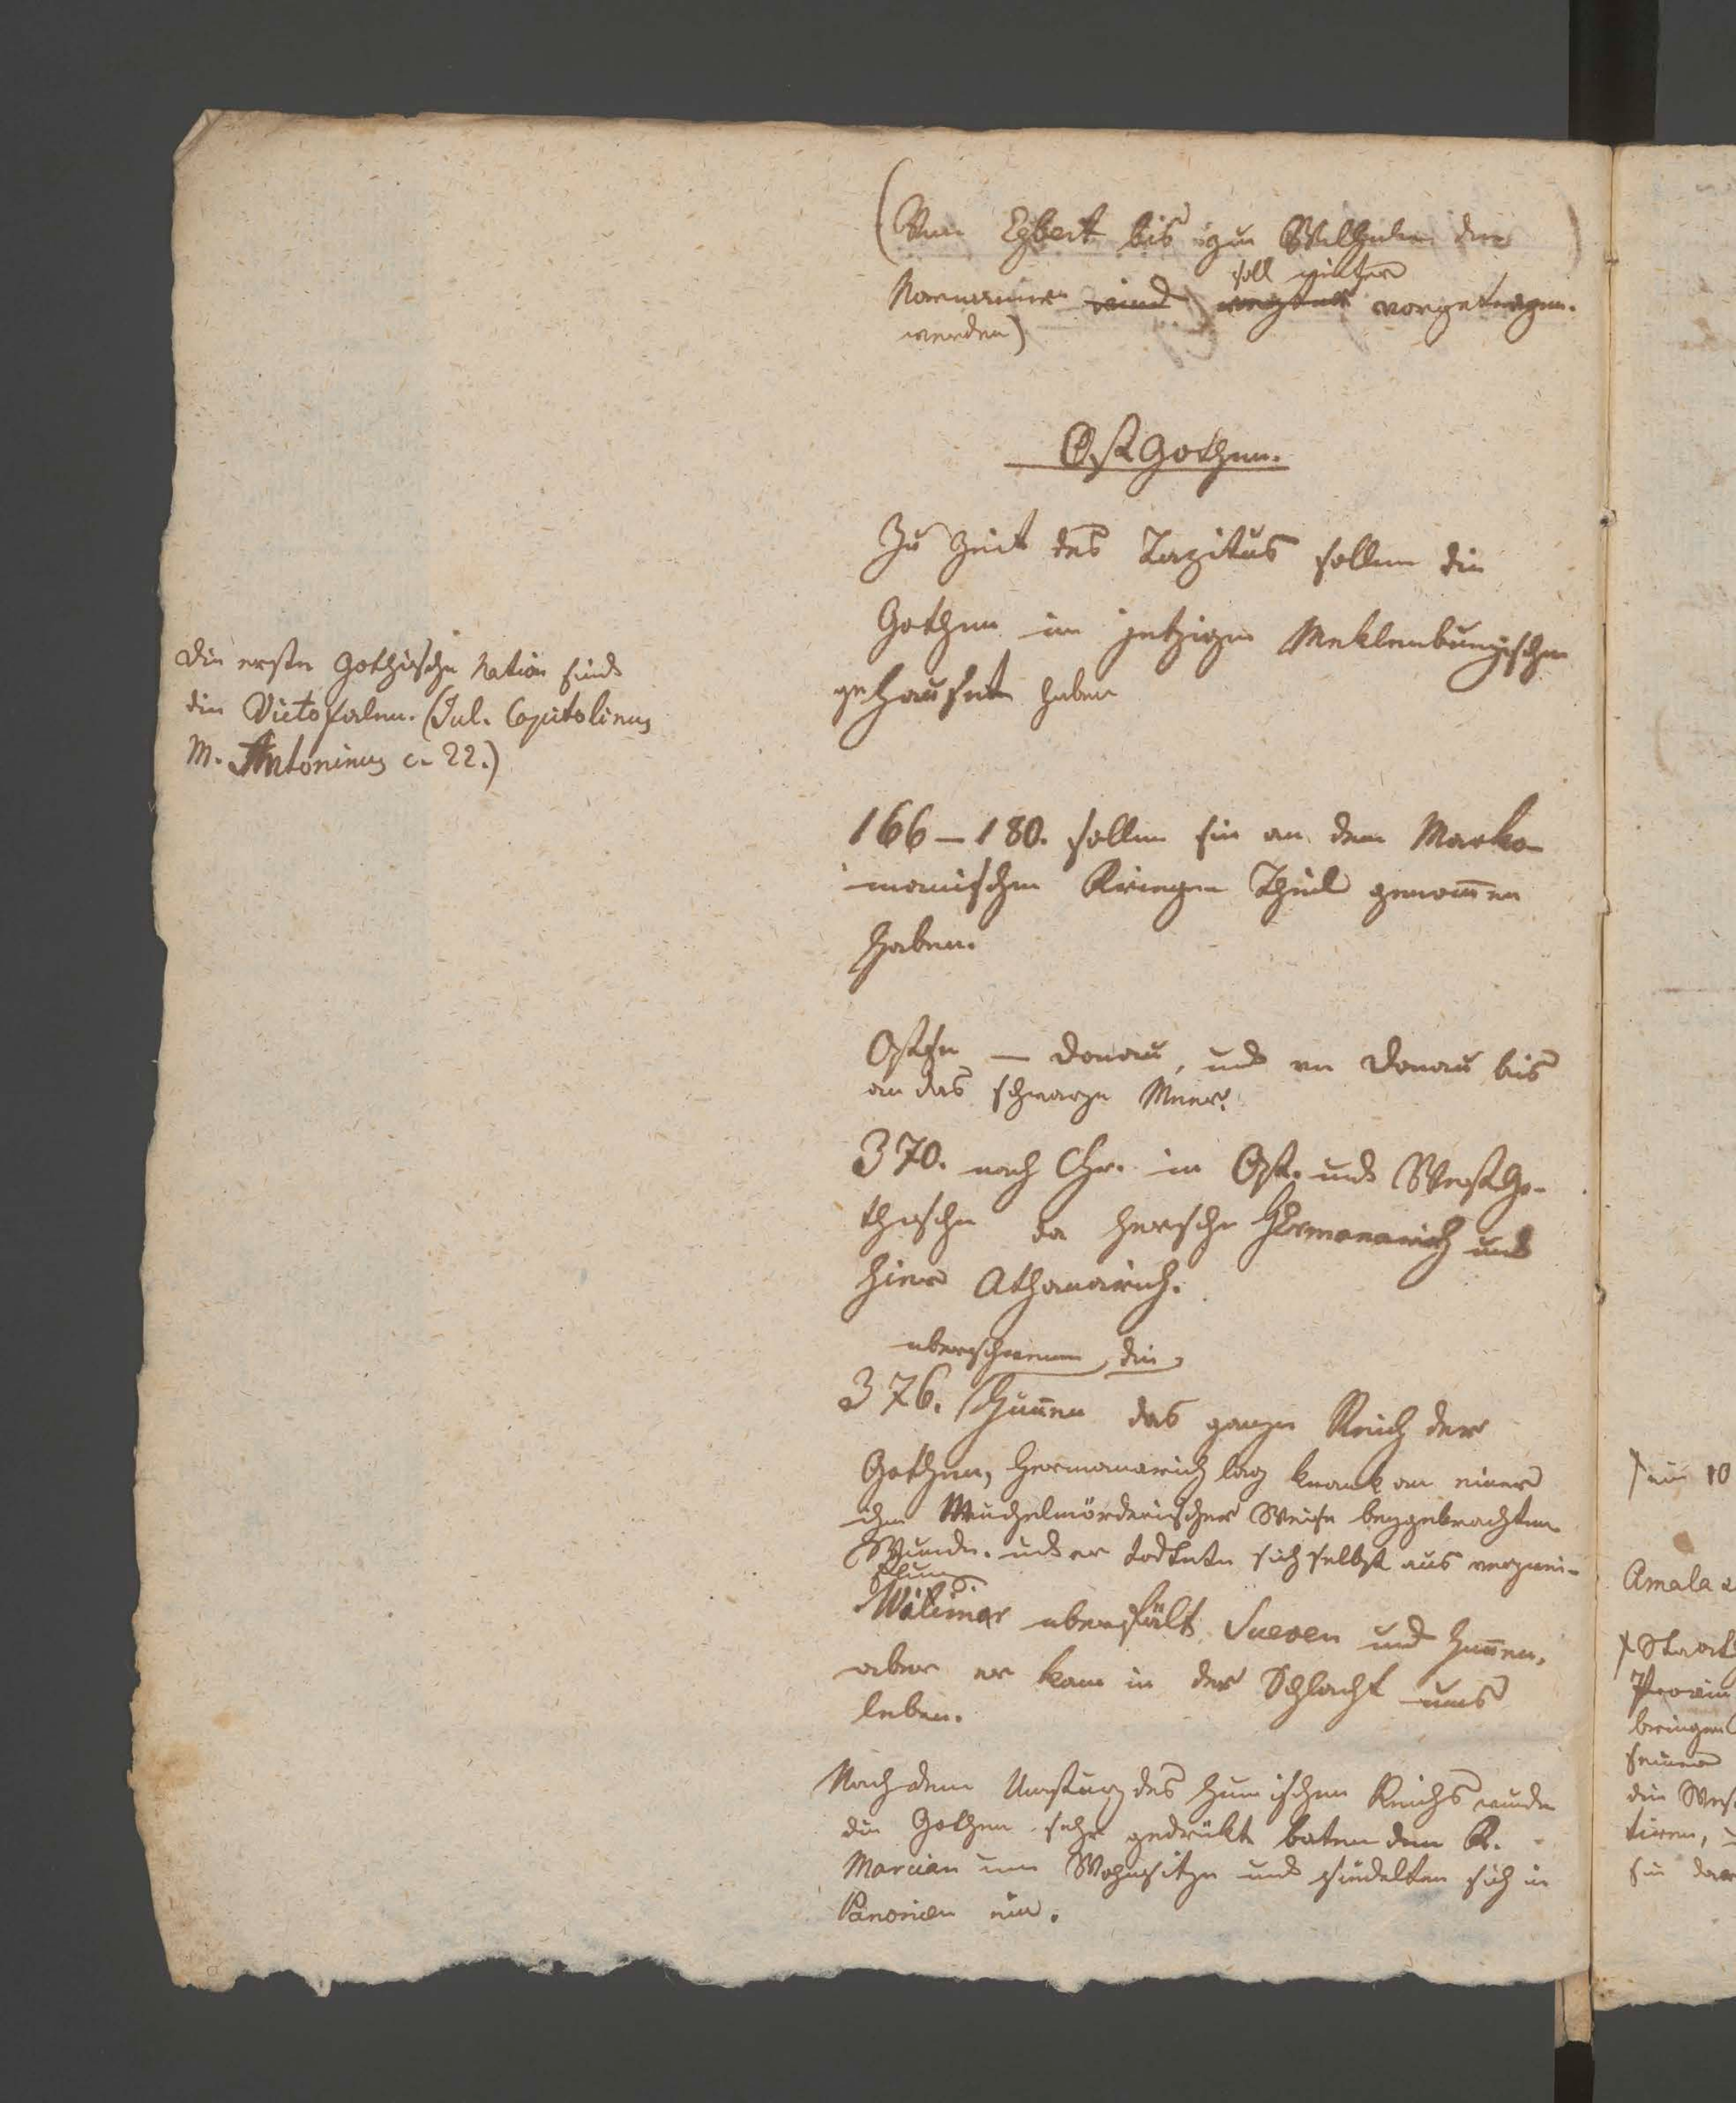 (Von Egbert bis zu Wilhelm den
Normannen wird soll später vorgetragen.
werden)
OstGothen.
Zu Zeit des Tazitus sollen die
Gothen im jetzigen Meklenburgischen
gehauset haben
Die erste Gothische Nation sind
die Victofalen. (Jul. Capitolinus
M. Antoninus c. 22.)
166–180. sollen sie an dem Marko-
manischen Kriegen Theil genom̄en
haben.
Ostsee — Donau, und an Donau bis
an das schwarze Meer.
370. nach Chr. in Ost- und WestGo-
thische da hersche Hermanarich und
hier Athanarich.
uberschwemen die
376. Hun̄en das ganze Reich der
Gothen, Hermanarich lag krank an einer
ihm Meuchelmörderischer Weise beygebrachten
Wunde. und er todtete sich selbst aus verzwei-
flung.
Witimar uberfält Sueven und Hun̄en,
aber er kam in der Schlacht ums
leben.
Nach dem Umsturz des Hunischen Reichs wurde
die Gothen sehr gedrükt baten den K.
Marcian um Wohnsitze und siedelten sich in
Panonien ein.
10
Amala
Staat
Provin
bringen
seiner
die West
tiren,
sie